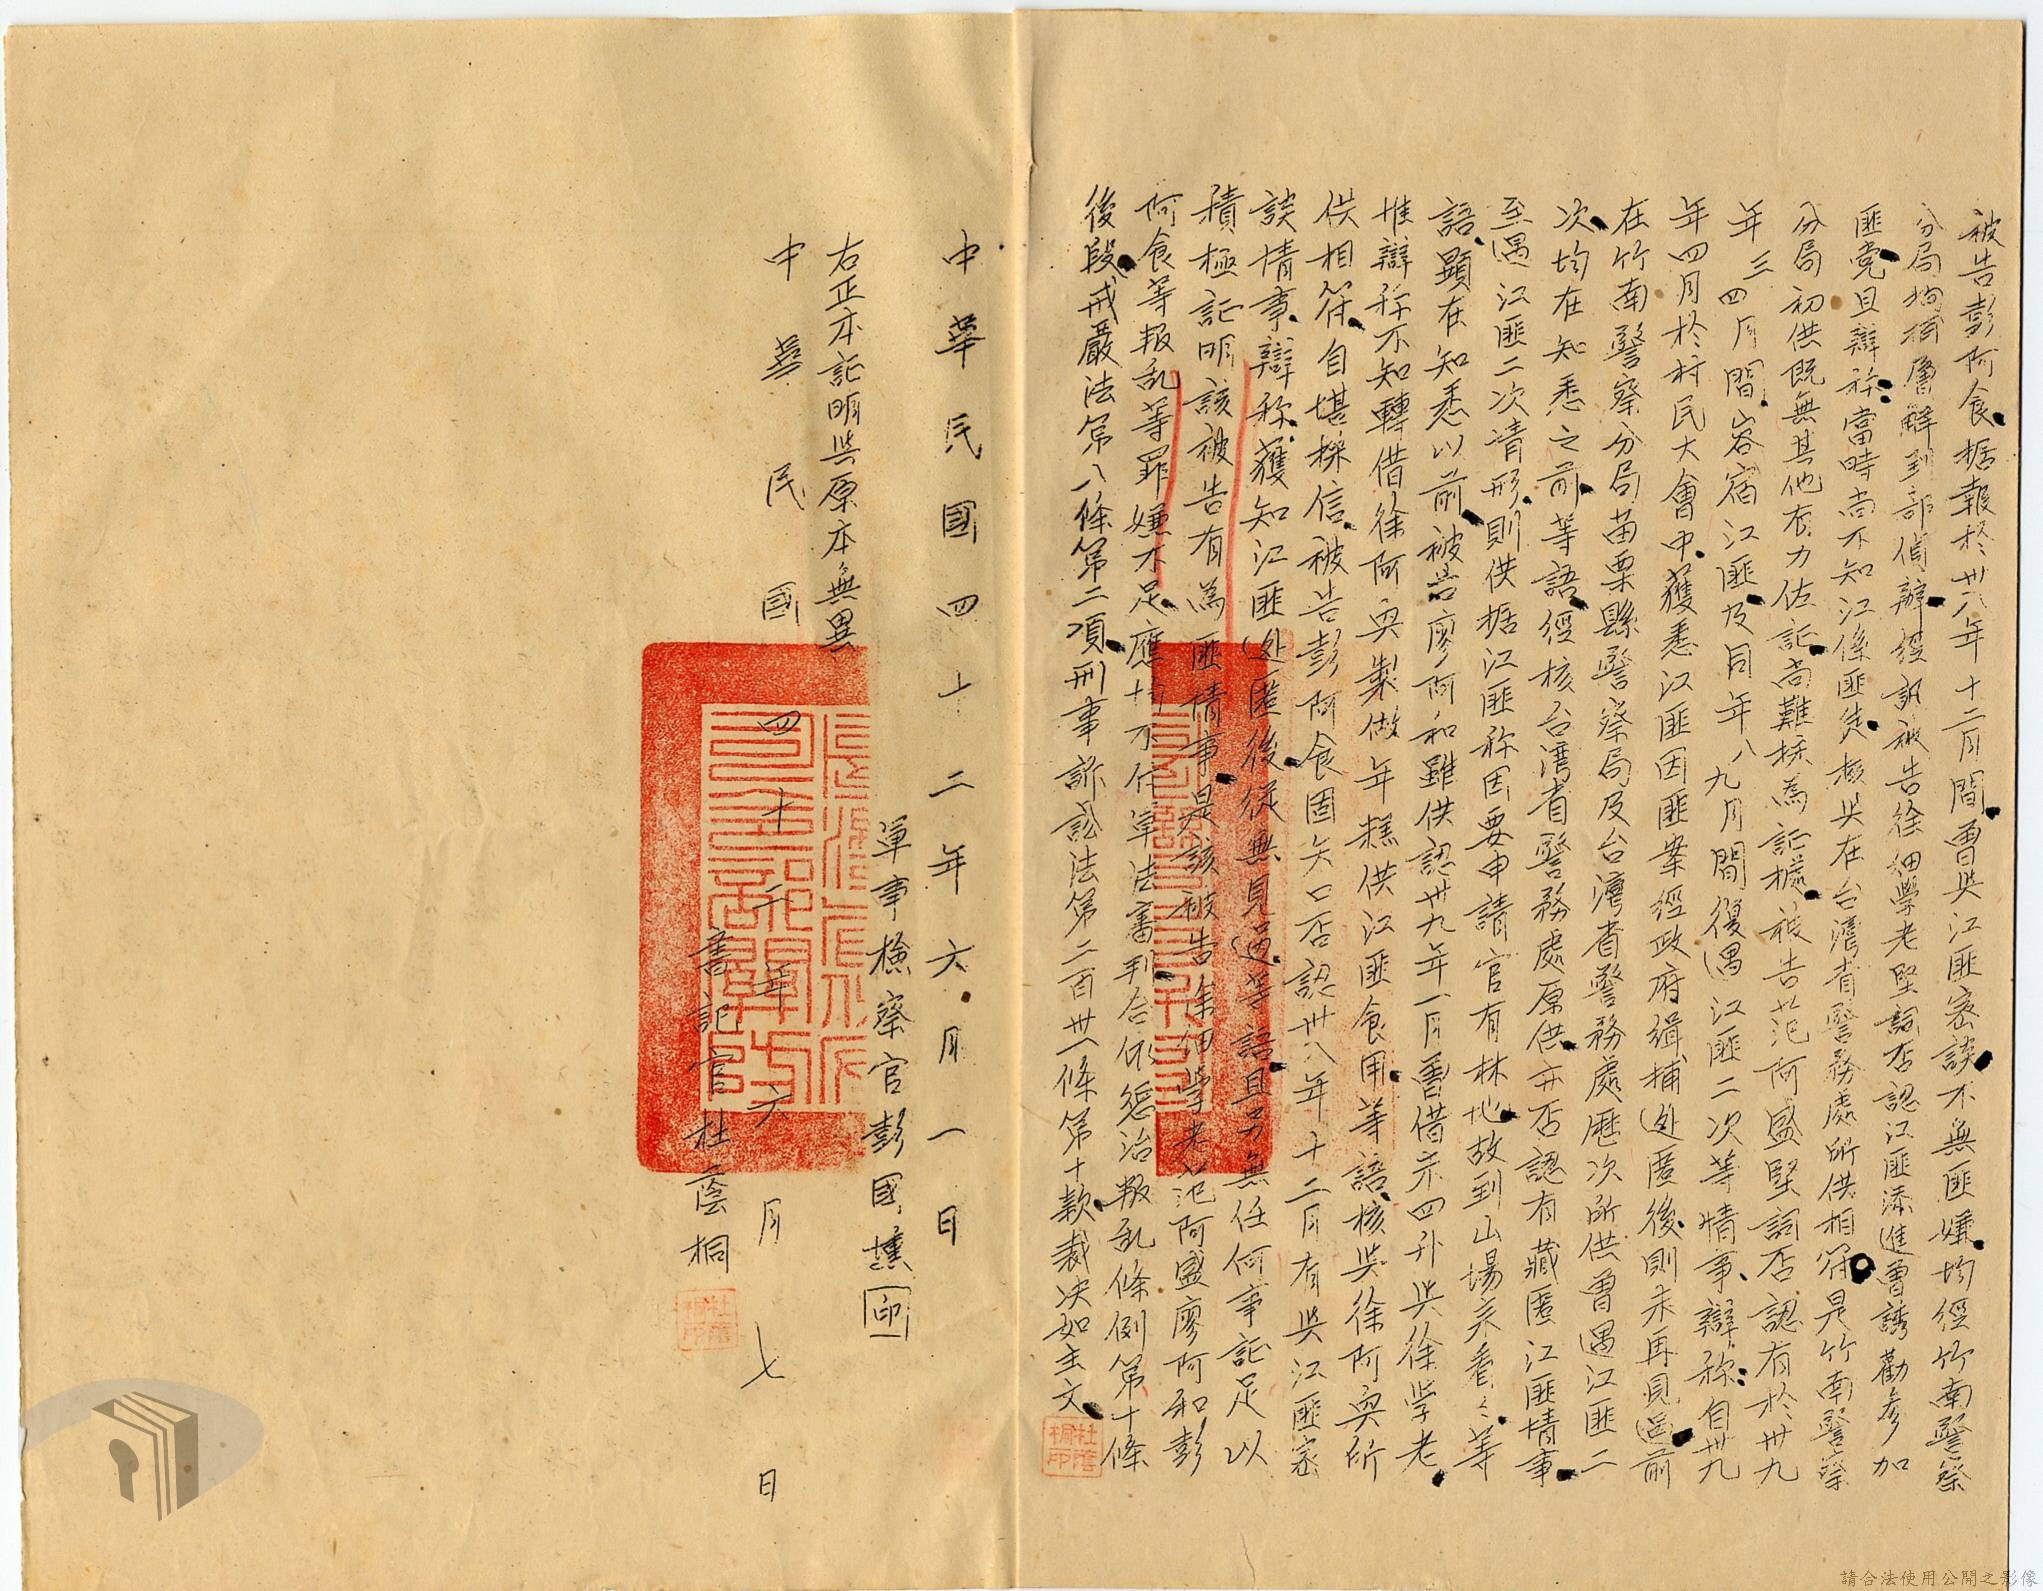 被告彭阿食据報於卅八年十二月間曾與江匪密談不無匪嫌均經竹南警察
分局拘捕層解到部偵辦經訊被告徐細學老堅詞否認江匪添進曾誘勸參加
匪党且辯称當時尚不知江係匪徒核與在台灣省警務處所供相符是竹南警察
分局初供既無其他有力佐証尚難採為証據被告范阿盛堅詞否認有於卅九
年三四月間容宿江匪及同年八九月間復遇江匪二次等情事辯称自卅九
年四月於村民大會中獲悉江匪因匪案經政府緝捕逃匿後則未再見過前
在竹南警察分局苗栗縣警察局及台灣省警務處歷次所供曾遇江匪二
次均在知悉之前等語經核台灣省警務處原供亦否認有藏匿江匪情事
至遇江匪二次情形則供据江匪称因要申請官有林地故到山場來看々等
語顯在知悉以前被告廖阿和雖供認卅九年一月曾借米四升與徐学老
惟辯称不知轉借徐阿奥製做年糕供江匪食用等語核與徐阿奥所
供相符自堪採信被告彭阿食固矢口否認卅八年十二月有與江匪密
談情事辯称獲知江匪逃匿後從無見過等語且另無任何事証足以
積極証明該被告有為匪情事是該被告徐細學老范阿盛廖阿和彭
阿食等叛乱等罪嫌不足應均不付軍法審判合依懲治叛乱條例第十條
後段戒嚴法第八條第二項刑事訴訟法第二百卅一條第十款裁決如主文
中華民國四十二年六月一日
軍事檢察官彭國壎印
右正本証明與原本無異
中華民國四十二年六月七日
書記官杜蔭桐
請合法使用公開之影像